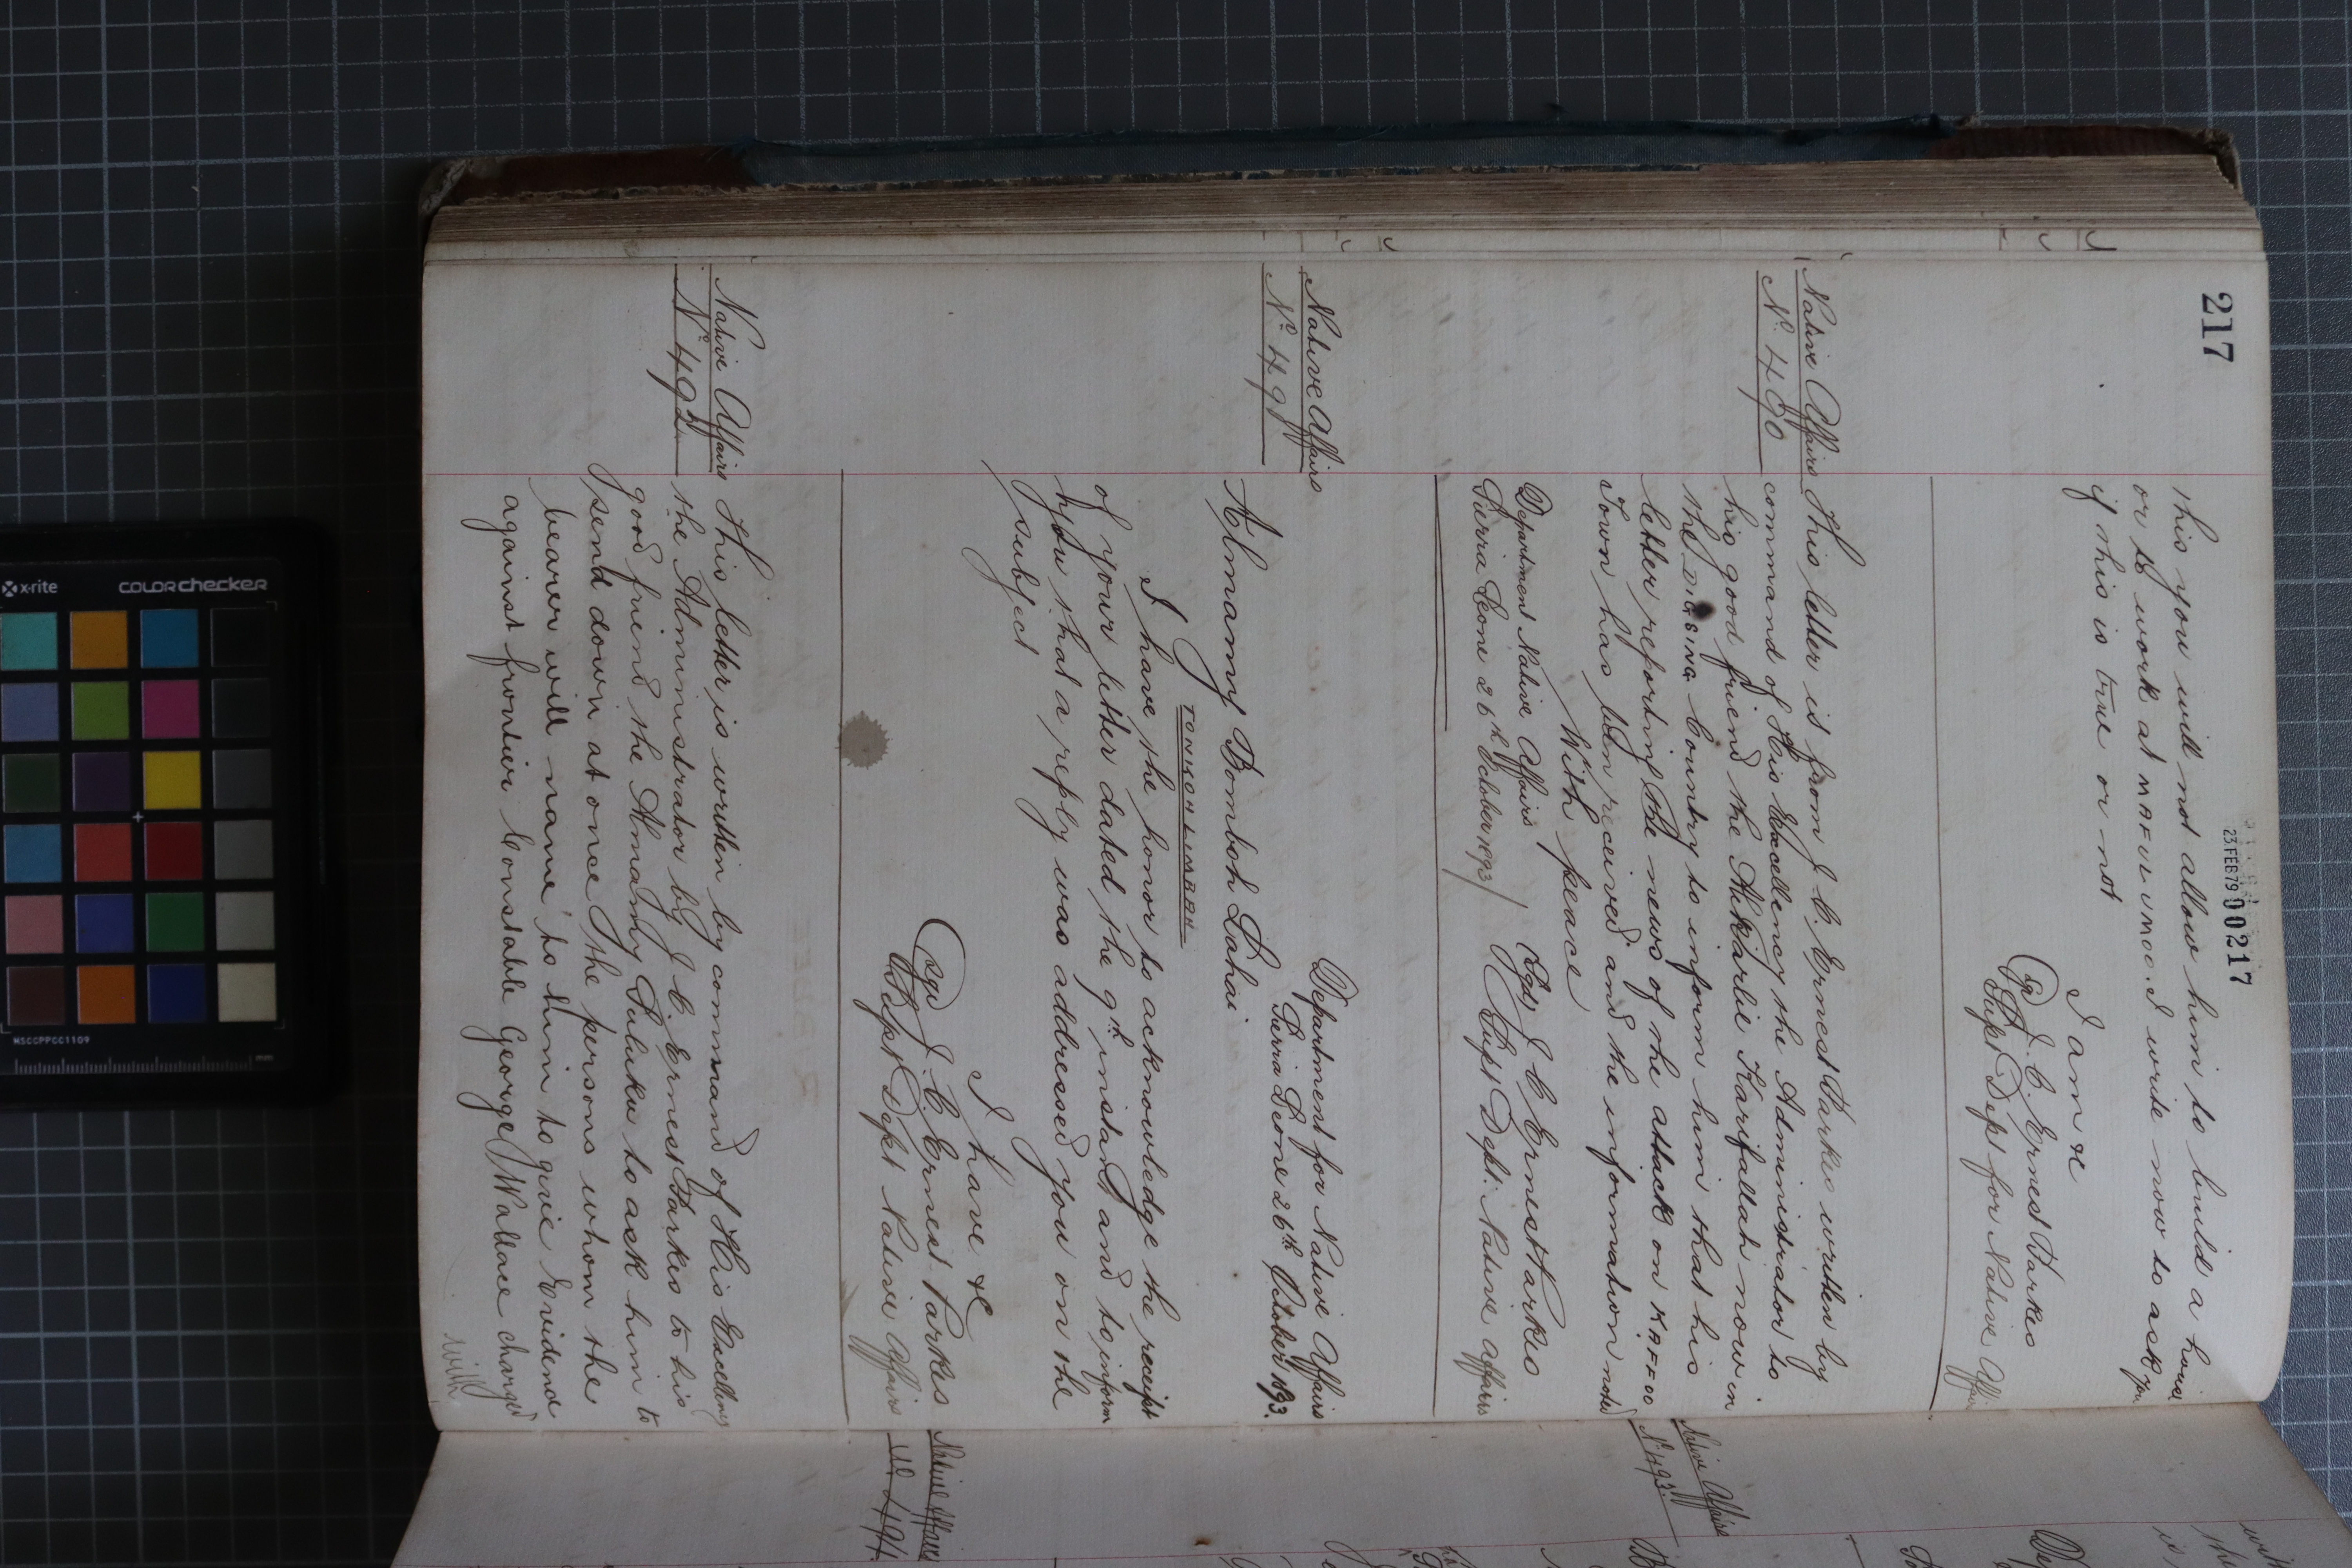 217
23 FEB 79 00217
this you will not allow him to build a house
or to work at MAFULUMO. I write now to ask you
if this is true or not
I am &c
(Sg) J. C. Ernest Parkes
Supt Dep for Native Affairs
Native Affairs
No. 490
This letter is from J. C. Ernest Parkes written by
command of His Excellency the Administrator to
his good friend the Alikarlie Karrifallah now in
the Country to inform him that his
letter reporting the news of the attack on KAFFOO
Town has been received and the information noted
With peace
Department Native Affairs
Sierra Leone 26th October 1893
(Sgd) J C Ernest Parkes
Supt Dept: Native Affairs
Native Affairs
No 491
Department for Native Affairs
Sierra Leone 26th October 1893.
Almamy Bomboh Lahai
TONKOH LIMBAH
I have the honor to acknowledge the receipt
of your letter dated the 9th instant and to inform
you that a reply was addressed you on the
subject
I have &c
(Sgd) J. C. Ernest Parkes
Supt Dept Native Affairs
Native Affairs
No 492
This letter is written by command of His Excellency
the Administrator by J C. Ernest Parkes to his
good friend the Almamy Suluku to ask him to
send down at once the persons whom the
bearer will name to him to give Evidence
against frontier Constable George Wallace charged
with
Native Affairs
No 493
Native Affairs
No 494
x-rite
colorchecker
MSCCPPCC1109
mm